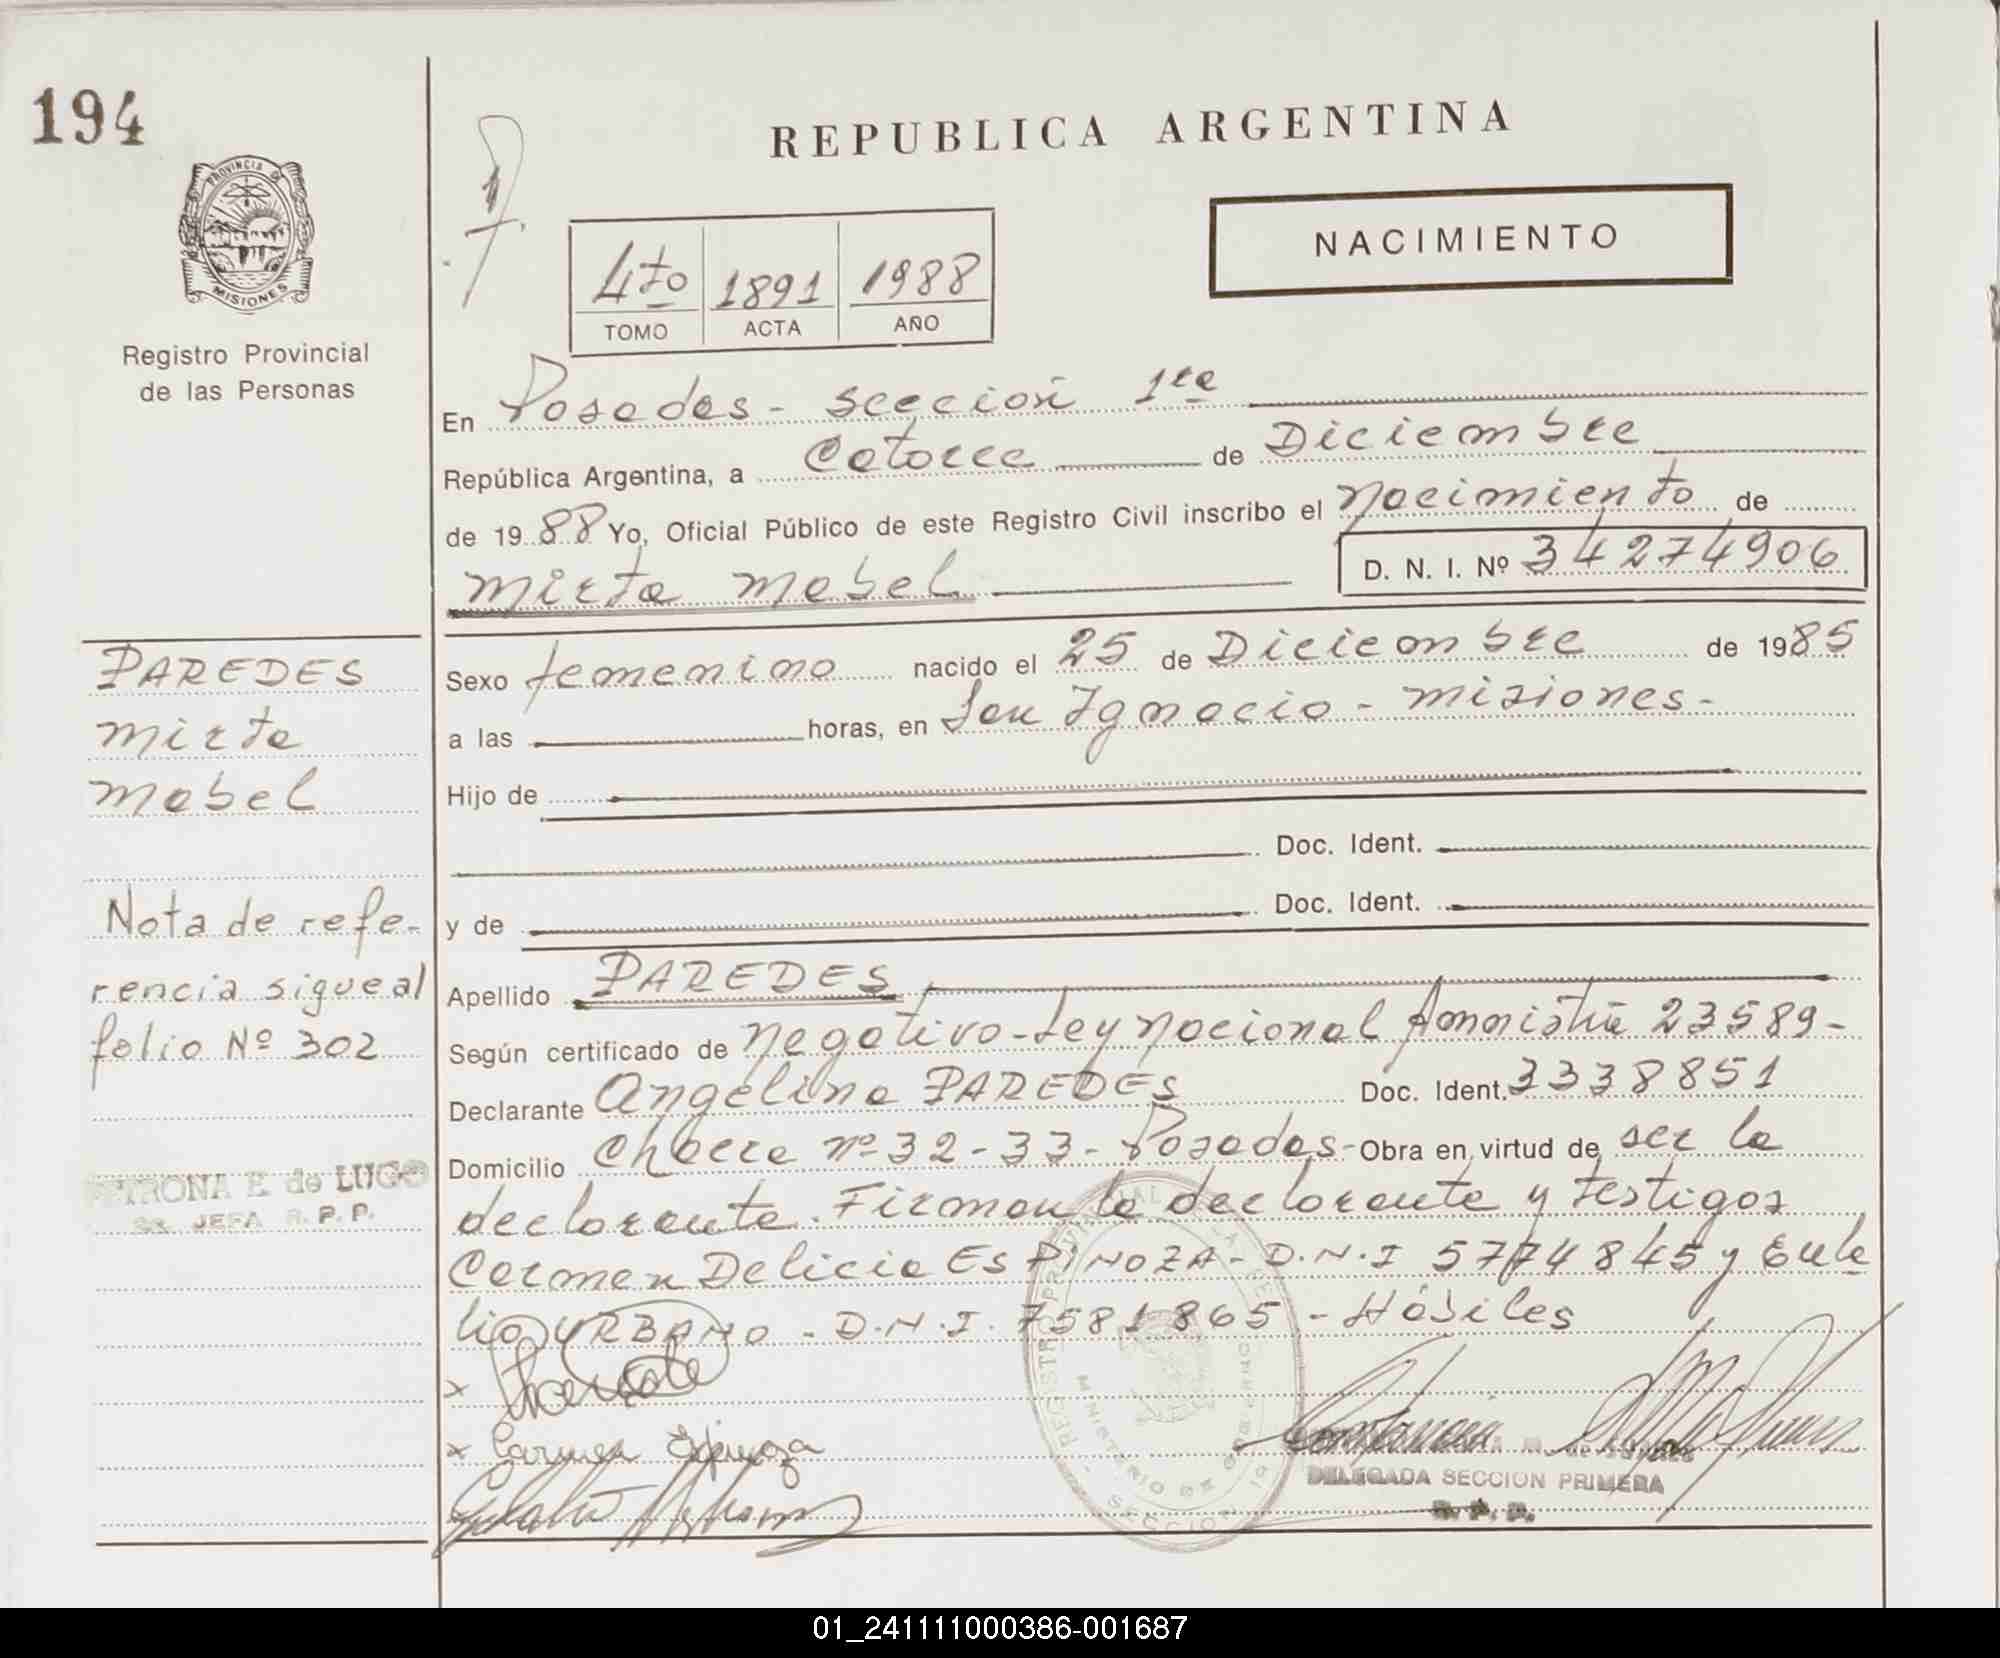 194
REPUBLICA ARGENTINA
NACIMIENTO
PROVINCIA DE
MISIONES
Registro Provincial
de las Personas
4to 1891 1988
TOMO ACTA AÑO
En Posadas - sección 1ra
República Argentina, a Catorce de Diciembre
de 1988 Yo, Oficial Público de este Registro Civil inscribo el nacimiento de
Mirta Mabel D. N. I. Nº 34274906
Sexo femenino nacido el 25 de Diciembre de 1985
a las horas, en San Ignacio - Misiones -
Hijo de
Doc. Ident.
y de Doc. Ident.
Apellido PAREDES
Según certificado de negativo - Ley Nacional Amnistía 23589 -
Declarante Angelina PAREDES Doc. Ident. 3338851
Domicilio Chacra nº 32-33 - Posadas - Obra en virtud de ser la
declarante. Firman la declarante y testigos
Carmen Delicia ESPINOZA - D.N.I 5774845 y Eula
lio URBANO - D.N.I. 7581865 - Hábiles
x
x Carmen Espinoza
DELEGADA SECCION PRIMERA
R. P. P.
PAREDES
Mirta
Mabel
Nota de refe-
rencia sigue al
folio Nº 302
PETRONA E. de LUGO
SR. JEFA R. P. P.
01_241111000386-001687